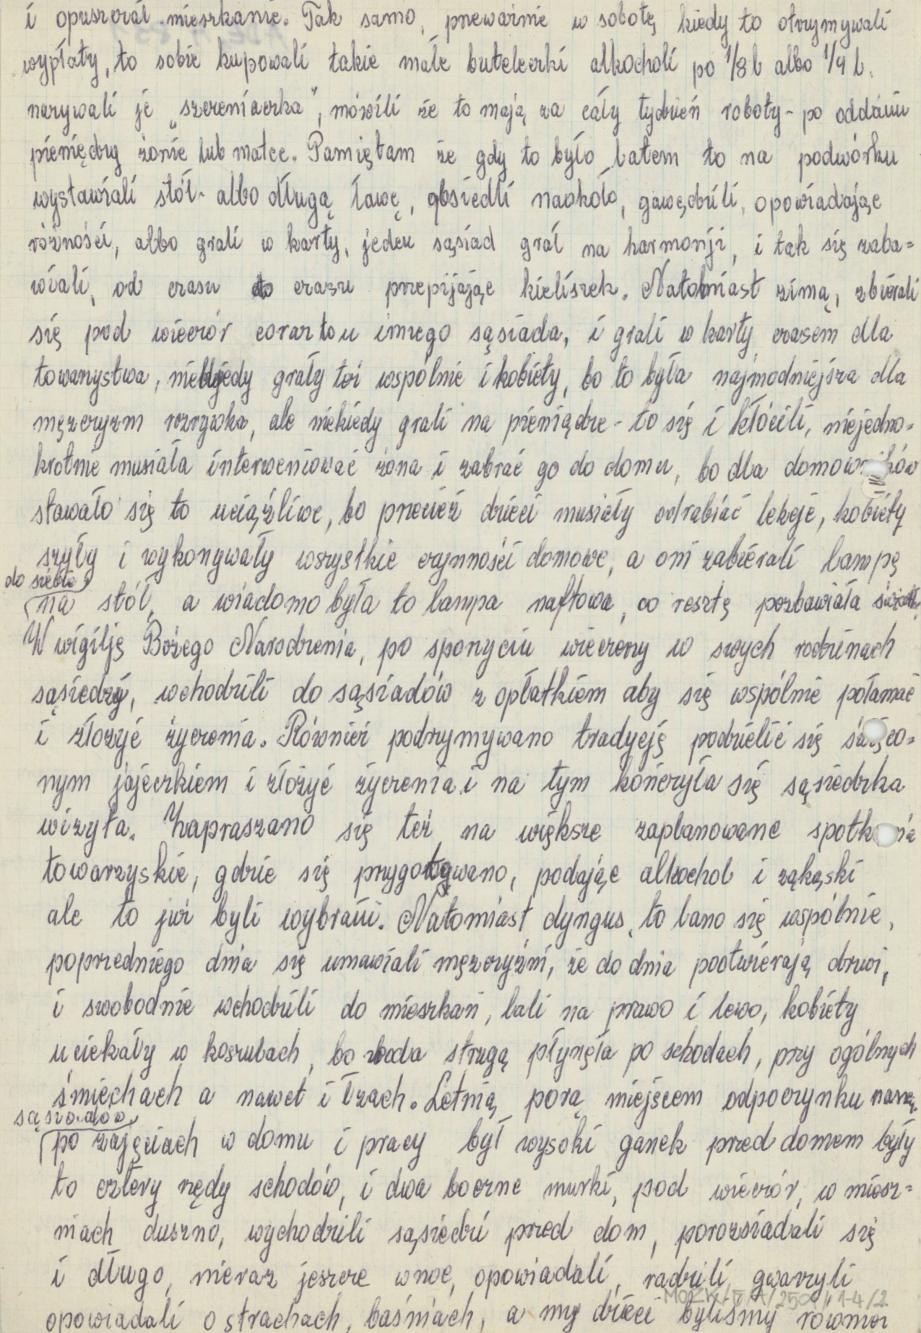 i opuszczał mieszkanie. Tak samo, przeważnie w sobotę kiedy to otrzymywali
wypłaty, to sobie kupowali takie małe buteleczki alkocholi po 1/8 l albo 1/4 l.
nazywali je "szczeniaczka", mówili że to mają za cały tydzień roboty - po oddaniu
pieniędzy żonie lub matce. Pamiętam że gdy to było latem to na podwórku
wystawiali stół - albo długą ławę, obsiedli naokoło, gawędzili, opowiadając
różności, albo grali w karty, jeden sąsiad grał na harmonji, i tak się zaba=
wiali, od czasu do czasu przepijając kieliszek. Natomiast zimą, zbierali
się pod wieczór coraz to u innego sąsiada, i grali w karty czasem dla
towarzystwa, niekiedy grały też wspólnie i kobiety, bo to była najmodniejsza dla
mężczyzm rozrywka, ale niekiedy grali na pieniądze - to się i kłócili, niejedno=
krotnie musiała interweniować żona i zabrać go do domu, bo dla domowników
stawało się to uciążliwe, bo przecież dzieci musiały odrabiać lekcje, kobiety
szyły i wykonywały wszystkie czynności domowe, a oni zabierali lampę
do siebie
na stół, a wiadomo była to lampa naftowa, co resztę pozbawiała
W wigilję Bożego Narodzenia, po spożyciu wieczerzy w swych rodzinach
sąsiedzi, wchodzili do sąsiadów z opłatkiem aby się wspólnie połamać
i złożyć życzenia. Również podtrzymywano tradycję podzielić się święco=
nym jajeczkiem i złożyć życzenia i na tym kończyła się sąsiedzka
wizyta. Zapraszano się też na większe zaplanowane spotkania
towarzyskie, gdzie się przygotowywano, podając alkochol i zakąski
ale to już byli wybrani. Natomiast dyngus, to lano się wspólnie,
poprzedniego dnia się umawiali mężczyźni, że do dnia pootwierają drzwi,
i swobodnie wchodzili do mieszkań, lali na prawo i lewo, kobiety
uciekały w koszulach, bo woda strugą płynęła po schodach, przy ogólnych
śmiechach a nawet i łzach. Letnią porą miejscem odpoczynku
sąsiadów
po zajęciach w domu i pracy był wysoki ganek przed domem były
to cztery rzędy schodów, i dwa boczne murki, pod wieczór, w miesz=
niach duszno, wychodzili sąsiedzi przed dom, porozsiadali się
i długo, nieraz jeszcze w noc, opowiadali, radzili, gwarzyli
opowiadali o strachach, baśniach, a my dzieci byliśmy również